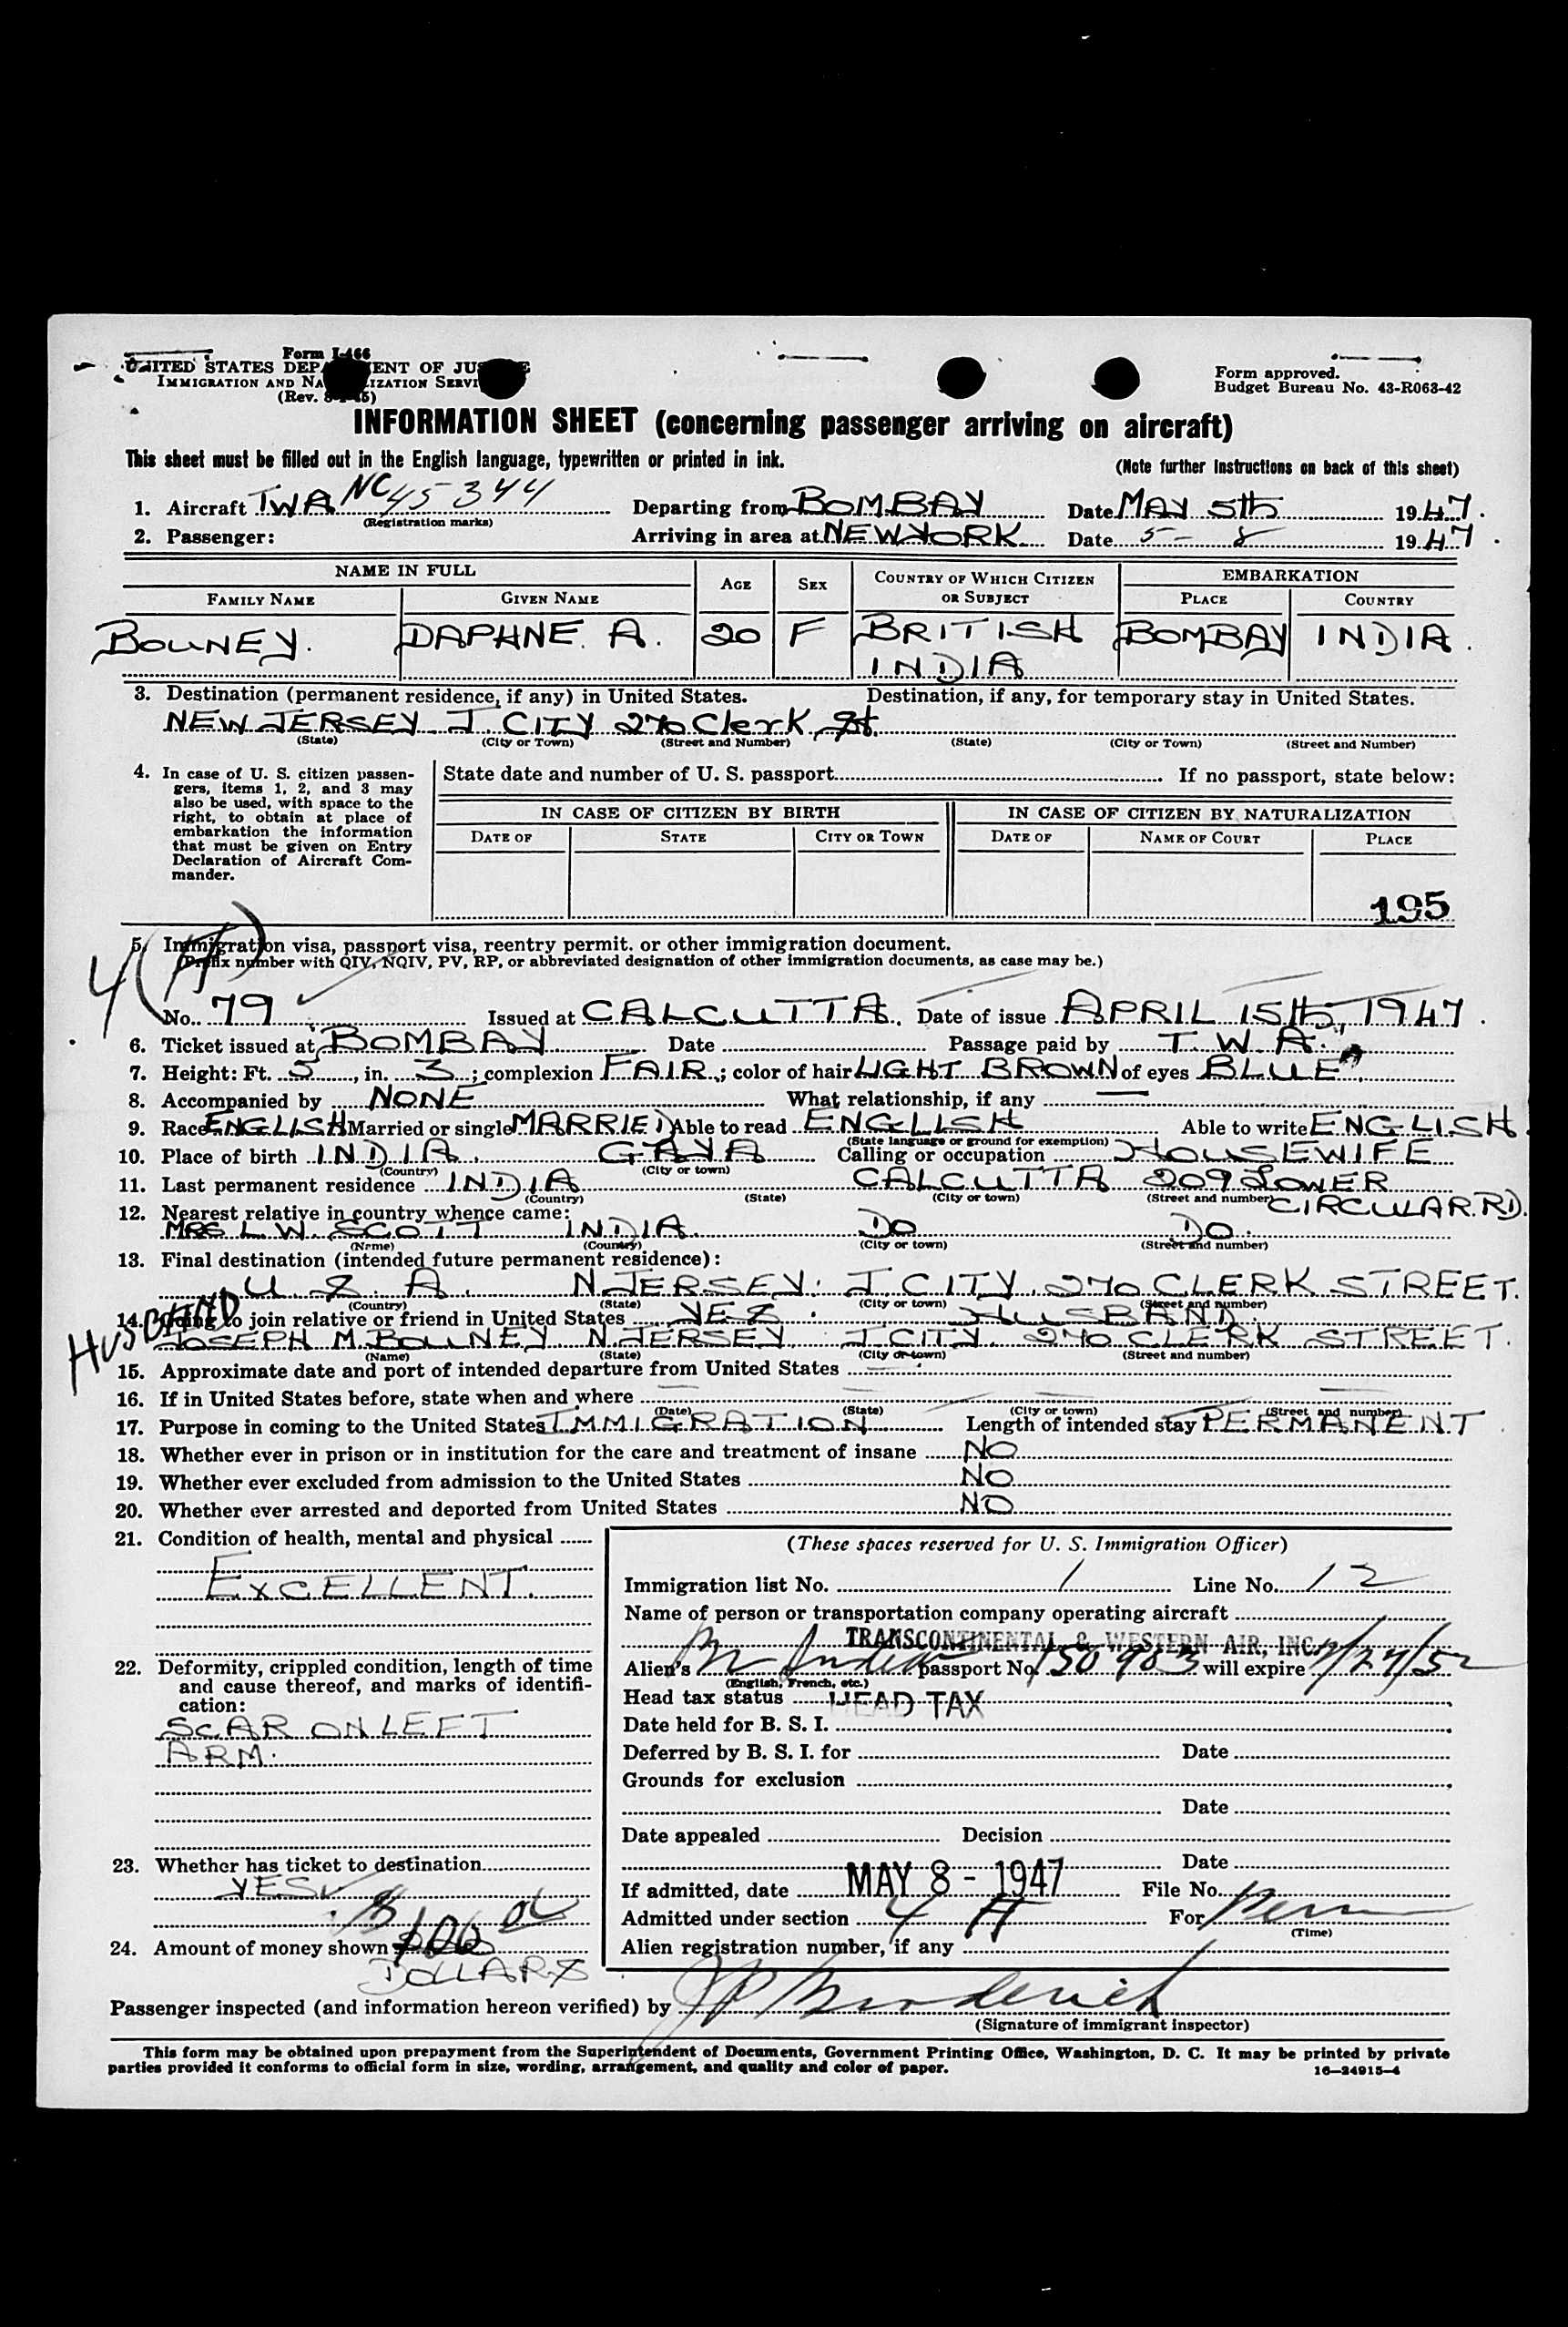 Form I-466
UNITED STATES DEPARTMENT OF JUSTICE
IMMIGRATION AND NATURALIZATION SERVICE
(Rev. 8-1-45)
Form approved.
Budget Bureau No. 43-R063-42
INFORMATION SHEET (concerning passenger arriving on aircraft)
This sheet must be filled out in the English language, typewritten or printed in ink.
(Note further instructions on back of this sheet)
1. Aircraft TWA NC 45344 Departing from BOMBAY Date MAY 5th 1947.
(Registration marks)
2. Passenger: Arriving in area at NEW YORK Date 5-8 1947.
NAME IN FULL AGE SEX COUNTRY OF WHICH CITIZEN OR SUBJECT EMBARKATION
FAMILY NAME GIVEN NAME PLACE COUNTRY
BOUNEY. DAPHNE. A. 20 F BRITISH BOMBAY INDIA.
INDIA
3. Destination (permanent residence, if any) in United States. Destination, if any, for temporary stay in United States.
NEW JERSEY J. CITY 270 Clerk St.
(State) (City or Town) (Street and Number) (State) (City or Town) (Street and Number)
4. In case of U. S. citizen passen-
gers, items 1, 2, and 3 may
also be used, with space to the
right, to obtain at place of
embarkation the information
that must be given on Entry
Declaration of Aircraft Com-
mander.
State date and number of U. S. passport If no passport, state below:
IN CASE OF CITIZEN BY BIRTH IN CASE OF CITIZEN BY NATURALIZATION
DATE OF STATE CITY OR TOWN DATE OF NAME OF COURT PLACE
195
5. Immigration visa, passport visa, reentry permit, or other immigration document.
(Prefix number with QIV, NQIV, PV, RP, or abbreviated designation of other immigration documents, as case may be.)
4(A)
No. 79 Issued at CALCUTTA. Date of issue APRIL 15th, 1947.
6. Ticket issued at BOMBAY Date Passage paid by T. W. A.
7. Height: Ft. 5, in. 3; complexion FAIR; color of hair LIGHT BROWN of eyes BLUE
8. Accompanied by NONE What relationship, if any —
9. Race ENGLISH Married or single MARRIED Able to read ENGLISH Able to write ENGLISH.
(State language or ground for exemption)
10. Place of birth INDIA. GAYA Calling or occupation HOUSEWIFE
(Country) (City or town)
11. Last permanent residence INDIA CALCUTTA 209 LOWER
(Country) (State) (City or town) (Street and number)
CIRCULAR. RD.
12. Nearest relative in country whence came:
MRS L. W. SCOTT INDIA. DO DO.
(Name) (Country) (City or town) (Street and number)
13. Final destination (intended future permanent residence):
U. S. A. N. JERSEY. J. CITY. 270 CLERK STREET.
(Country) (State) (City or town) (Street and number)
HUSBAND
14. Going to join relative or friend in United States YES. HUSBAND.
JOSEPH M. BOUNEY N. JERSEY J. CITY. 270 CLERK STREET.
(Name) (State) (City or town) (Street and number)
15. Approximate date and port of intended departure from United States
16. If in United States before, state when and where
(Date) (State) (City or town) (Street and number)
17. Purpose in coming to the United States IMMIGRATION Length of intended stay PERMANENT
18. Whether ever in prison or in institution for the care and treatment of insane NO
19. Whether ever excluded from admission to the United States NO
20. Whether ever arrested and deported from United States NO
21. Condition of health, mental and physical
EXCELLENT.
22. Deformity, crippled condition, length of time
and cause thereof, and marks of identifi-
cation:
SCAR ON LEFT
ARM.
23. Whether has ticket to destination
YES
24. Amount of money shown $100
DOLLARS
(These spaces reserved for U. S. Immigration Officer)
Immigration list No. 1 Line No. 12
Name of person or transportation company operating aircraft
TRANSCONTINENTAL & WESTERN AIR, INC.
Alien's Br Indian passport No. 150983 will expire 2/27/52
(English, French, etc.)
Head tax status HEAD TAX
Date held for B. S. I.
Deferred by B. S. I. for Date
Grounds for exclusion
Date
Date appealed Decision
Date
If admitted, date MAY 8 - 1947 File No.
Admitted under section 4 A For Perm
(Time)
Alien registration number, if any
Passenger inspected (and information hereon verified) by J P Broderick
(Signature of immigrant inspector)
This form may be obtained upon prepayment from the Superintendent of Documents, Government Printing Office, Washington, D. C. It may be printed by private
parties provided it conforms to official form in size, wording, arrangement, and quality and color of paper.
16—24915-4